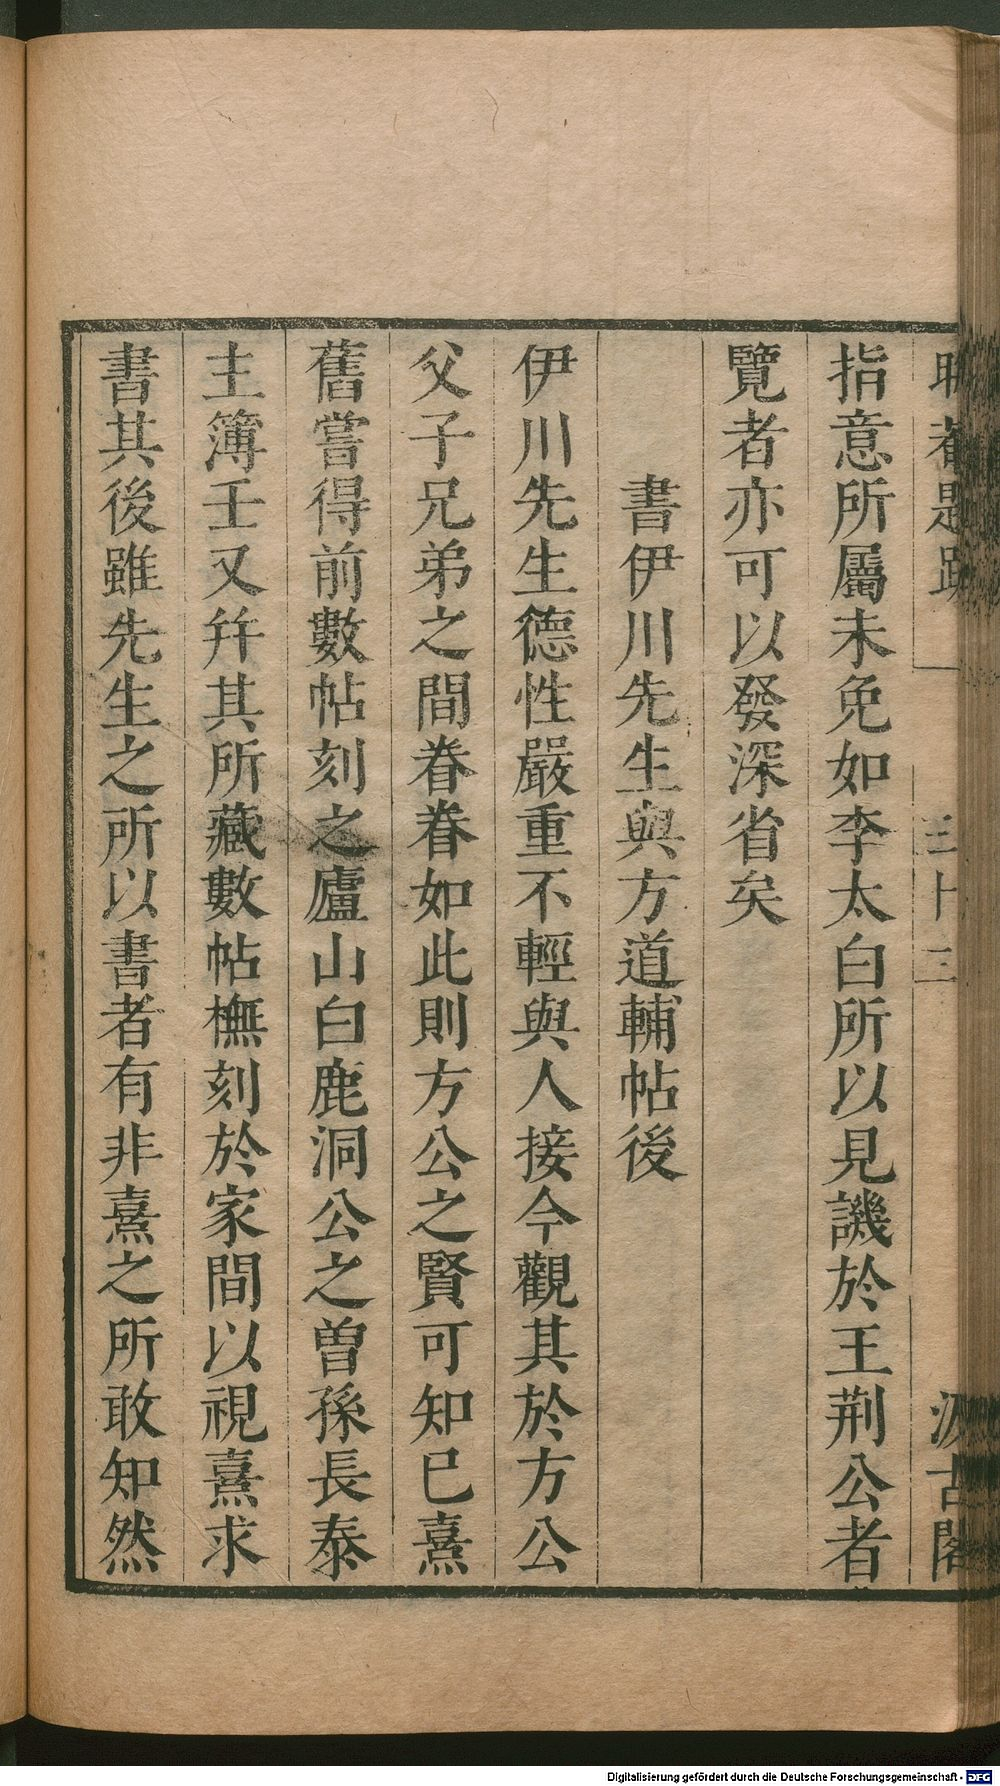 指意所屬未免如李太白所以見譏於王荆公者
覽者亦可以發深省矣
書伊川先生與方道輔帖後
伊川先生德性嚴重不輕與人接今觀其於方公
父子兄弟之間眷眷如此則方公之賢可知已熹
舊嘗得前數帖刻之廬山白鹿洞公之曾孫長泰
主簿壬又幷其所藏數帖橅刻於家間以視熹求
書其後雖先生之所以書者有非熹之所敢知然
三十三
汲古閣
Digitalisierung gefördert durch die Deutsche Forschungsgemeinschaft - DFG